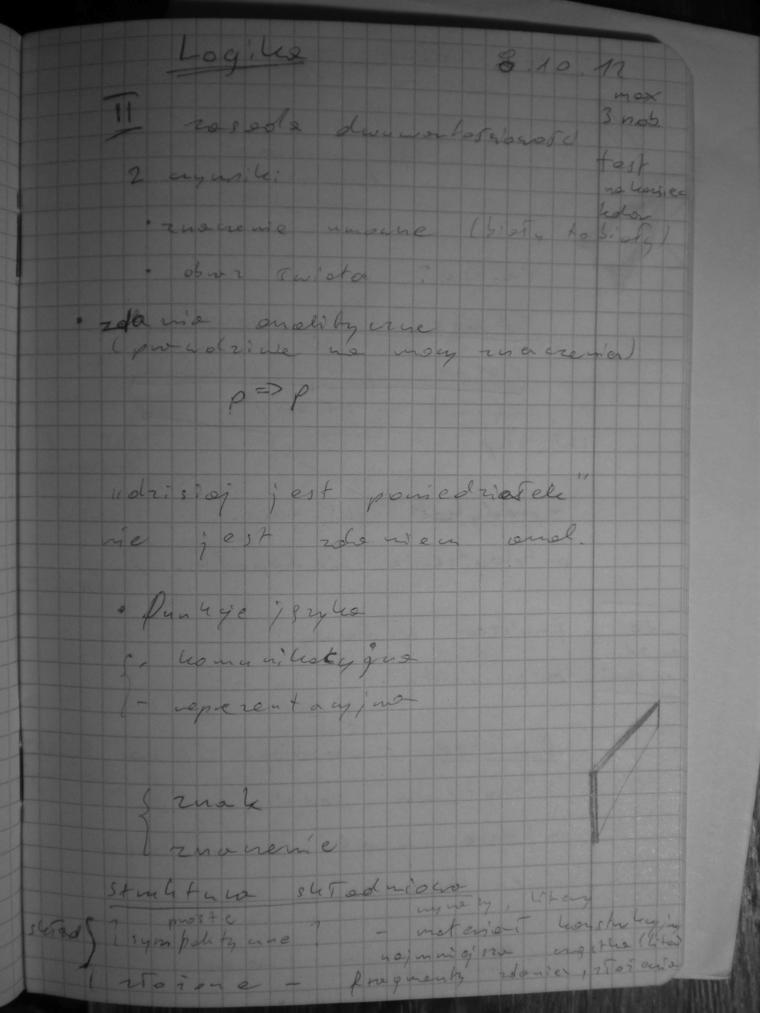 Logika
8.10.12
max
3 nob
II zasada dwuwartościowości
test
na koniec
2 czynniki:
• znaczenie umowne (biały to biały)
• obraz świata
• zdania analityczne
(prawdziwe na mocy znaczenia)
p => p
"dzisiaj jest poniedziałek"
nie jest zdaniem anal.
• funkcje języka
- komunikacyjna
- reprezentacyjna
znak
znaczenie
struktura składniowa
wyrazy, litery
proste
- materiał konstrukcyjny
najmniejsza cząstka
złożone - fragmenty zdania, złożenia